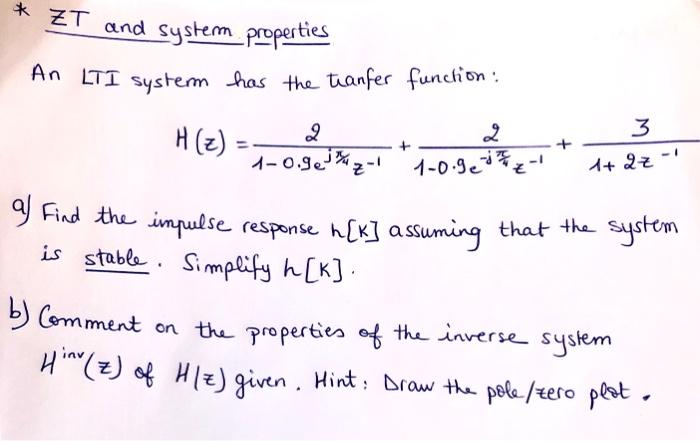 * ZT and system properties
An LTI system has the tranfer function:
H(z) = 2/(1-0.9e^{jπ/4}z^{-1}) + 2/(1-0.9e^{-jπ/4}z^{-1}) + 3/(1+2z^{-1})
a) Find the impulse response h[k] assuming that the system
is stable. Simplify h[k].
b) Comment on the properties of the inverse system
H^{inv}(z) of H(z) given. Hint: Draw the pole/zero plot.